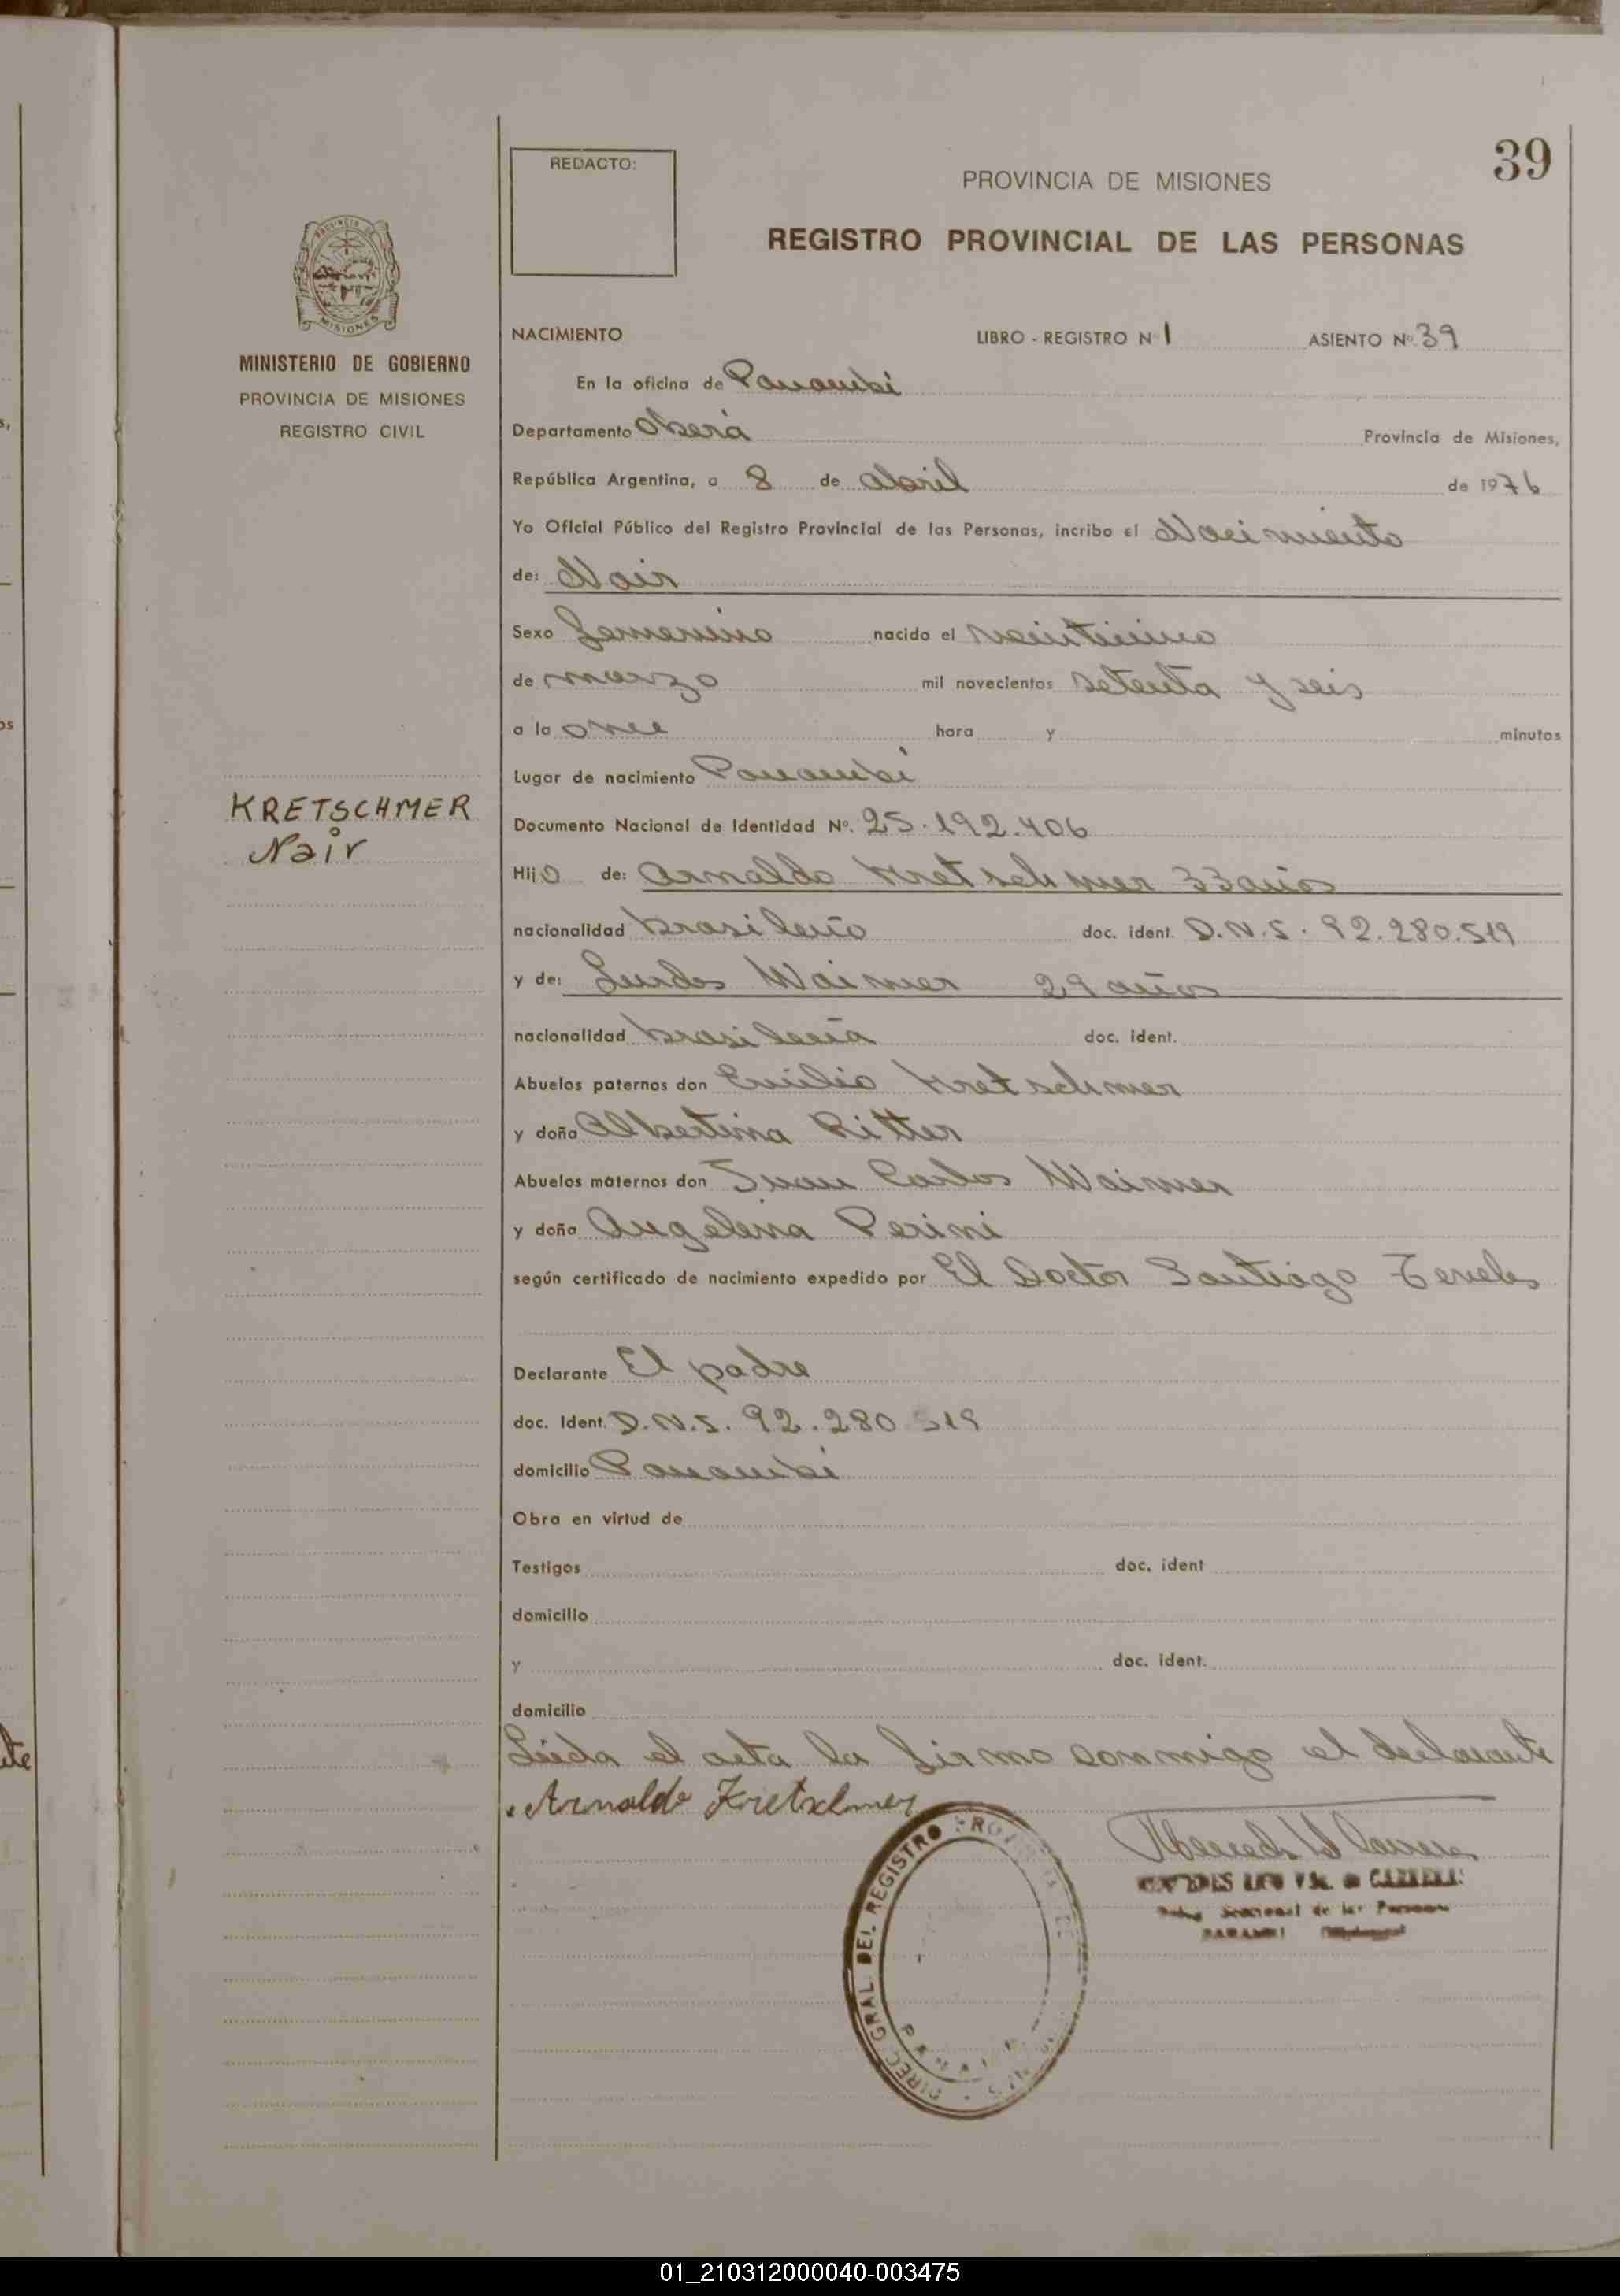 39
REDACTO:
PROVINCIA DE MISIONES
REGISTRO PROVINCIAL DE LAS PERSONAS
PROVINCIA DE
MISIONES
MINISTERIO DE GOBIERNO
PROVINCIA DE MISIONES
REGISTRO CIVIL
NACIMIENTO LIBRO - REGISTRO Nº 1 ASIENTO Nº 39
En la oficina de Panambí
Departamento Oberá Provincia de Misiones,
República Argentina, a 8 de abril de 1976
Yo Oficial Público del Registro Provincial de las Personas, incribo el Nacimiento
de: Nair
Sexo Femenino nacido el veinticinco
de marzo mil novecientos setenta y seis
a la once hora y minutos
Lugar de nacimiento Panambí
KRETSCHMER
Nair
Documento Nacional de Identidad Nº. 25.192.406
Hijo de: Arnaldo Kretschmer 33 años
nacionalidad brasileño doc. ident. D.N.I. 92.280.519
y de: Lurdes Waimer 29 años
nacionalidad brasileña doc. ident.
Abuelos paternos don Emilio Kretschmer
y doña Albertina Ritter
Abuelos maternos don Juan Carlos Waimer
y doña Angelina Perini
según certificado de nacimiento expedido por El Doctor Santiago
Declarante El padre
doc. Ident. D.N.I. 92.280.519
domicilio Panambí
Obra en virtud de
Testigos doc. ident
domicilio
y doc. ident.
domicilio
Leída el acta la firma conmigo el declarante
Arnaldo Kretschmer
DIREC. GRAL. DEL REGISTRO